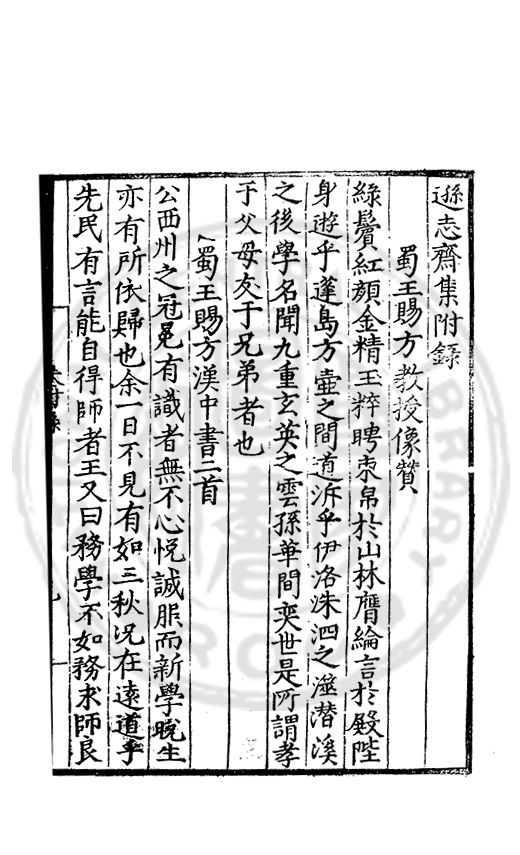 遜志齋集附錄
蜀王賜方教授像贊
綠鬢紅顏金精玉粹聘束帛於山林膺綸言於殿陛
身遊乎蓬島方壺之間道泝乎伊洛洙泗之澨潛溪
之後學名聞九重玄英之雲孫華間奕世是所謂孝
于父母友于兄弟者也
蜀王賜方漢中書二首
公西州之冠冕有識者無不心悅誠服而新學晚生
亦有所依歸也余一日不見有如三秋况在遠道乎
先民有言能自得師者王又曰務學不如務求師良